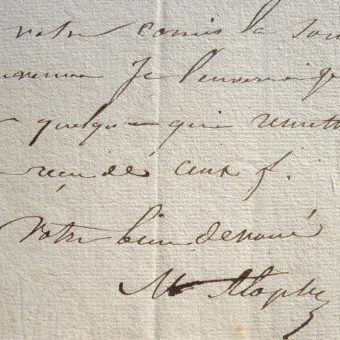 votre comis la som
je l'enverrai qu
quelqu'un qui remett
reçu de cent f.
Votre bien dévoué